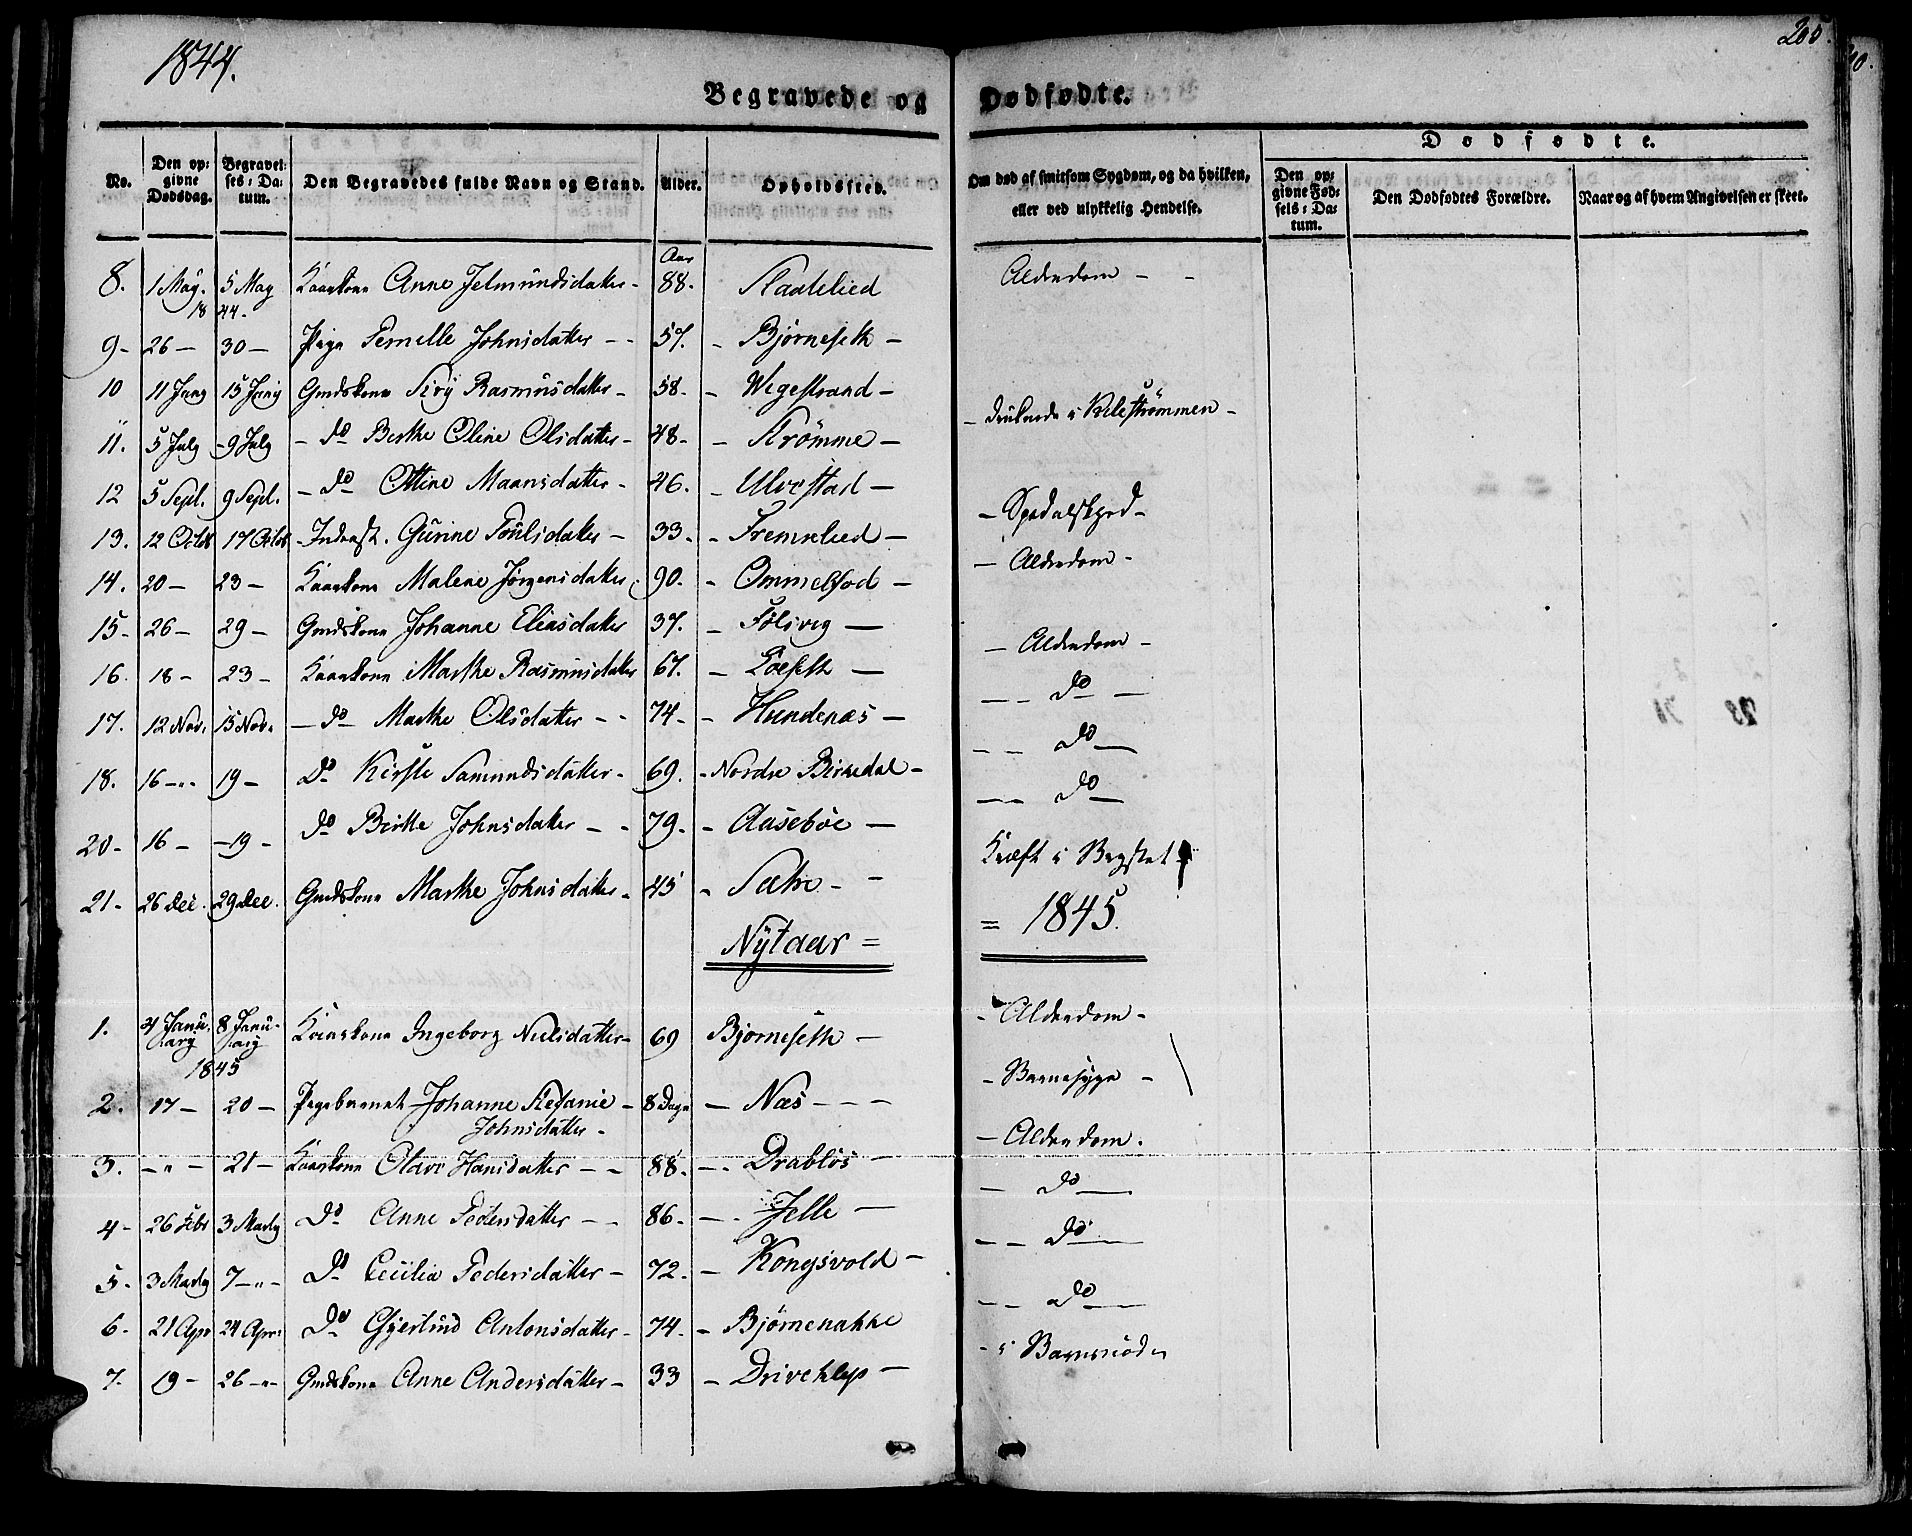 1844.
205.
Begravede og Dødfødte.
Dødfødte.
No.
Den opgivne Dødsdag.
Begravelses-Datum.
Den Begravedes fulde Navn og Stand.
Alder.
Opholdssted.
Om død af smitsom Sygdom, og da hvilken, eller ved ulykkelig Hendelse.
Den opgivne Fødsels-Datum.
Den Dødfødtes Forældre.
Naar og af hvem Angivelsen er skeet.
Aar
8. 1 May. 5 May Kaarkone Anne Jelmundsdatter - 88. Stadtelied Alderdom - -
18 44.
9 - 26 - 30 - Pige Pernelle Johnsdatter - - 57. - Bjørneseth -
10 11 Juny 15 Juny Gmdskone Siry Rasmusdatter - 58. - Wegestrand -
11. 5 July - 9 July - do Berthe Oline Olsdatter - 48 - - Strømme - - druknede i Kilestrømmen -
12 5 Sept. 9 Sept. - do Ottine Maansdatter - 46. - Ulvestad -
13. 12 Octbr 17 Octbr - Inderst. Gurine Poulsdatter - 33. - Fremrelied - - Spedalskhed -
14. 20 - 23 - Kaarkone Malene Jørgensdatter 90. - Ommelsfod - - Alderdom -
15 - 26 - 29 - Gmdskone Johanne Eliasdatter 37. - Følsvig -
16. 18 - 23 - Kaarkone Marthe Rasmusdatter 67. - Løeseth - - Alderdom -
17. 12 Nov. 15 Nov. - do Marthe Olsdatter - - 74 - - Hundenæs - - - do -
18. 16 - " - 19 - do Kirste Samundsdatter - 69. - Nordre Birkedal - - - do -
20 - 16 - - 19 - do Birthe Johnsdatter - - 79. - Aasebøe - - - do -
21 - 26 Dec. 29 Dec. Gmdskone Marthe Johnsdatter - 45 - Sætre - - Kræft i Brystet
Nytaar = = 1845.
1. 4 January 8 January Kaarskone Ingeborg Nielsdatter - 69 Bjørneseth - - Alderdom -
1845
2. 17 - 20 - Pigebarnet Johanne Stefanie - 8 Dage - Næs - - - - Barnesyge -
Johnsdatter -
3. - " - 21 - Kaarkone Olave Hansdatter - - 88 - - . Drabløs - - Alderdom.
4 - 26 Febr 3 Marty do Anne Pedersdatter - - 86 - - . Jelle - - do -
5 - 3 Marty 7 - " - do Cecilia Pedersdatter - 72. - Kongsvold - - - do -
6. 21 Apr 24 Apr. do Gjertrud Antonsdatter - 74. - Bjørnenakke - - do -
7. 19 - 26 - " - Gmdskone Anne Andersdatter - 33 - Driveklep - - i Barnsnød